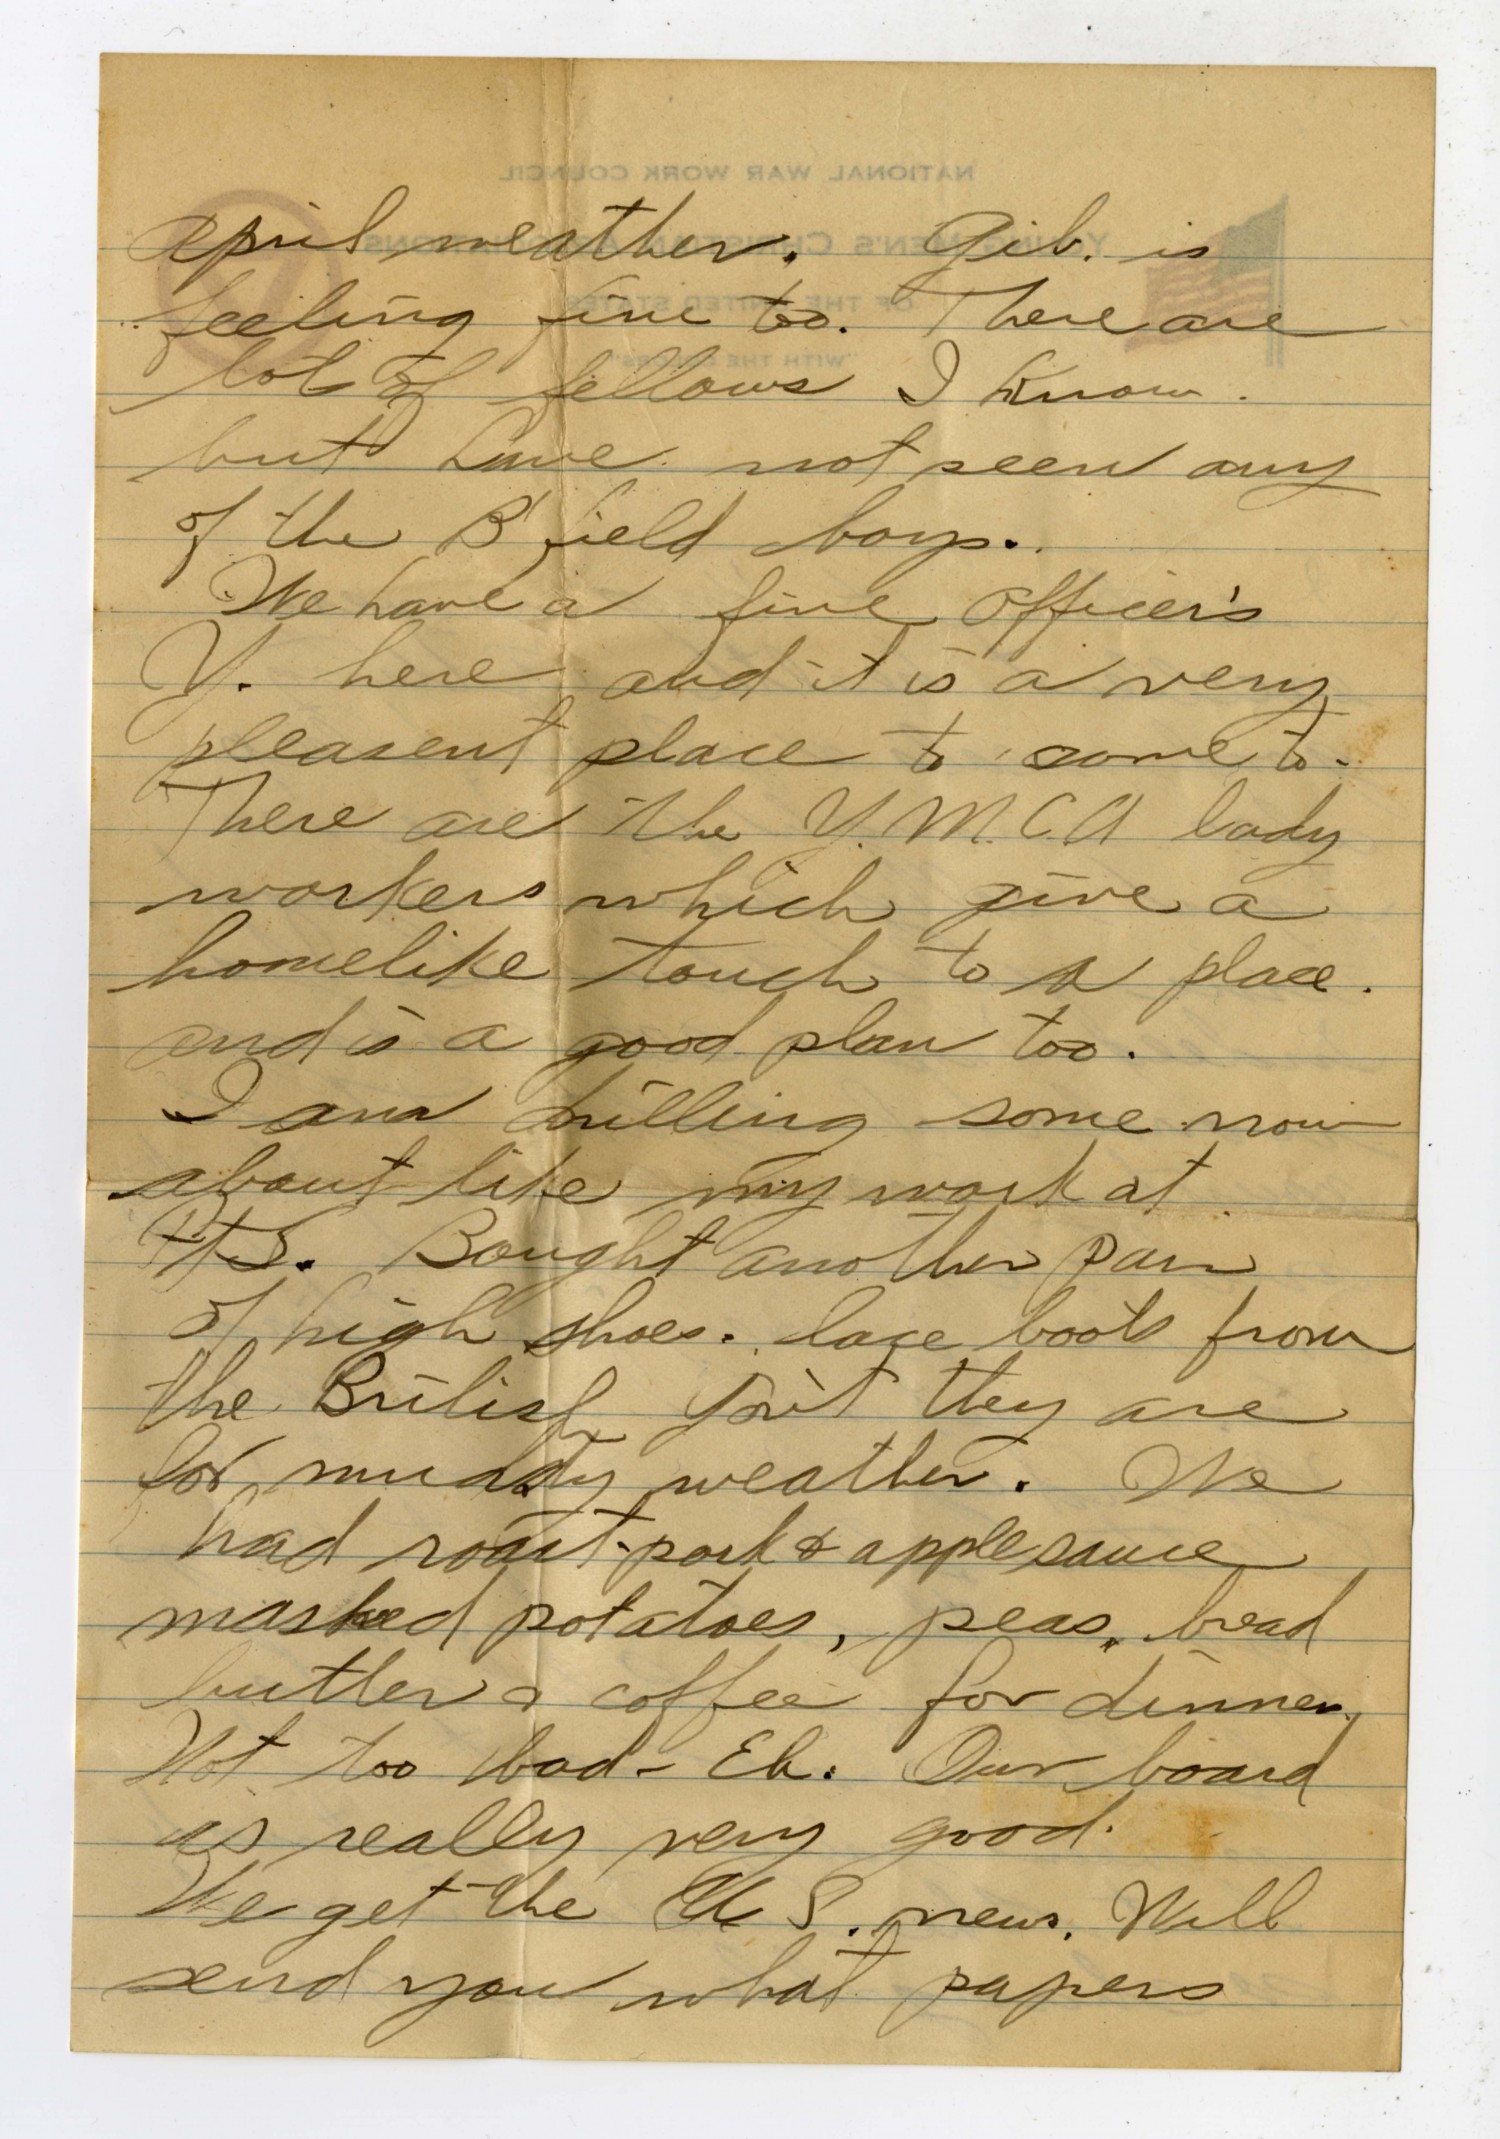 NATIONAL WAR WORK COUNCIL
YOUNG MEN'S CHRISTIAN ASSOCIATIONS
OF THE UNITED STATES
"WITH THE COLORS"
april weather. Gib. is
feeling fine too. There are
lots of fellows I know.
but have not seen any
of the B'field boys.
We have a fine Officer's
Y. here and it is a very
pleasent place to come to.
There are the Y.M.C.A lady
workers which give a
homelike touch to a place.
and is a good plan too.
I am drilling some now
about like my work at
Bought another pair
of high shoes. lace boots from
the British Gov't they are
for muddy weather. We
had roast pork & applesauce
mashed potatoes, peas, bread
butter & coffee for dinner.
Not too bad - Eh. Our board
is really very good.
We get the U S. news. Will
send you what papers